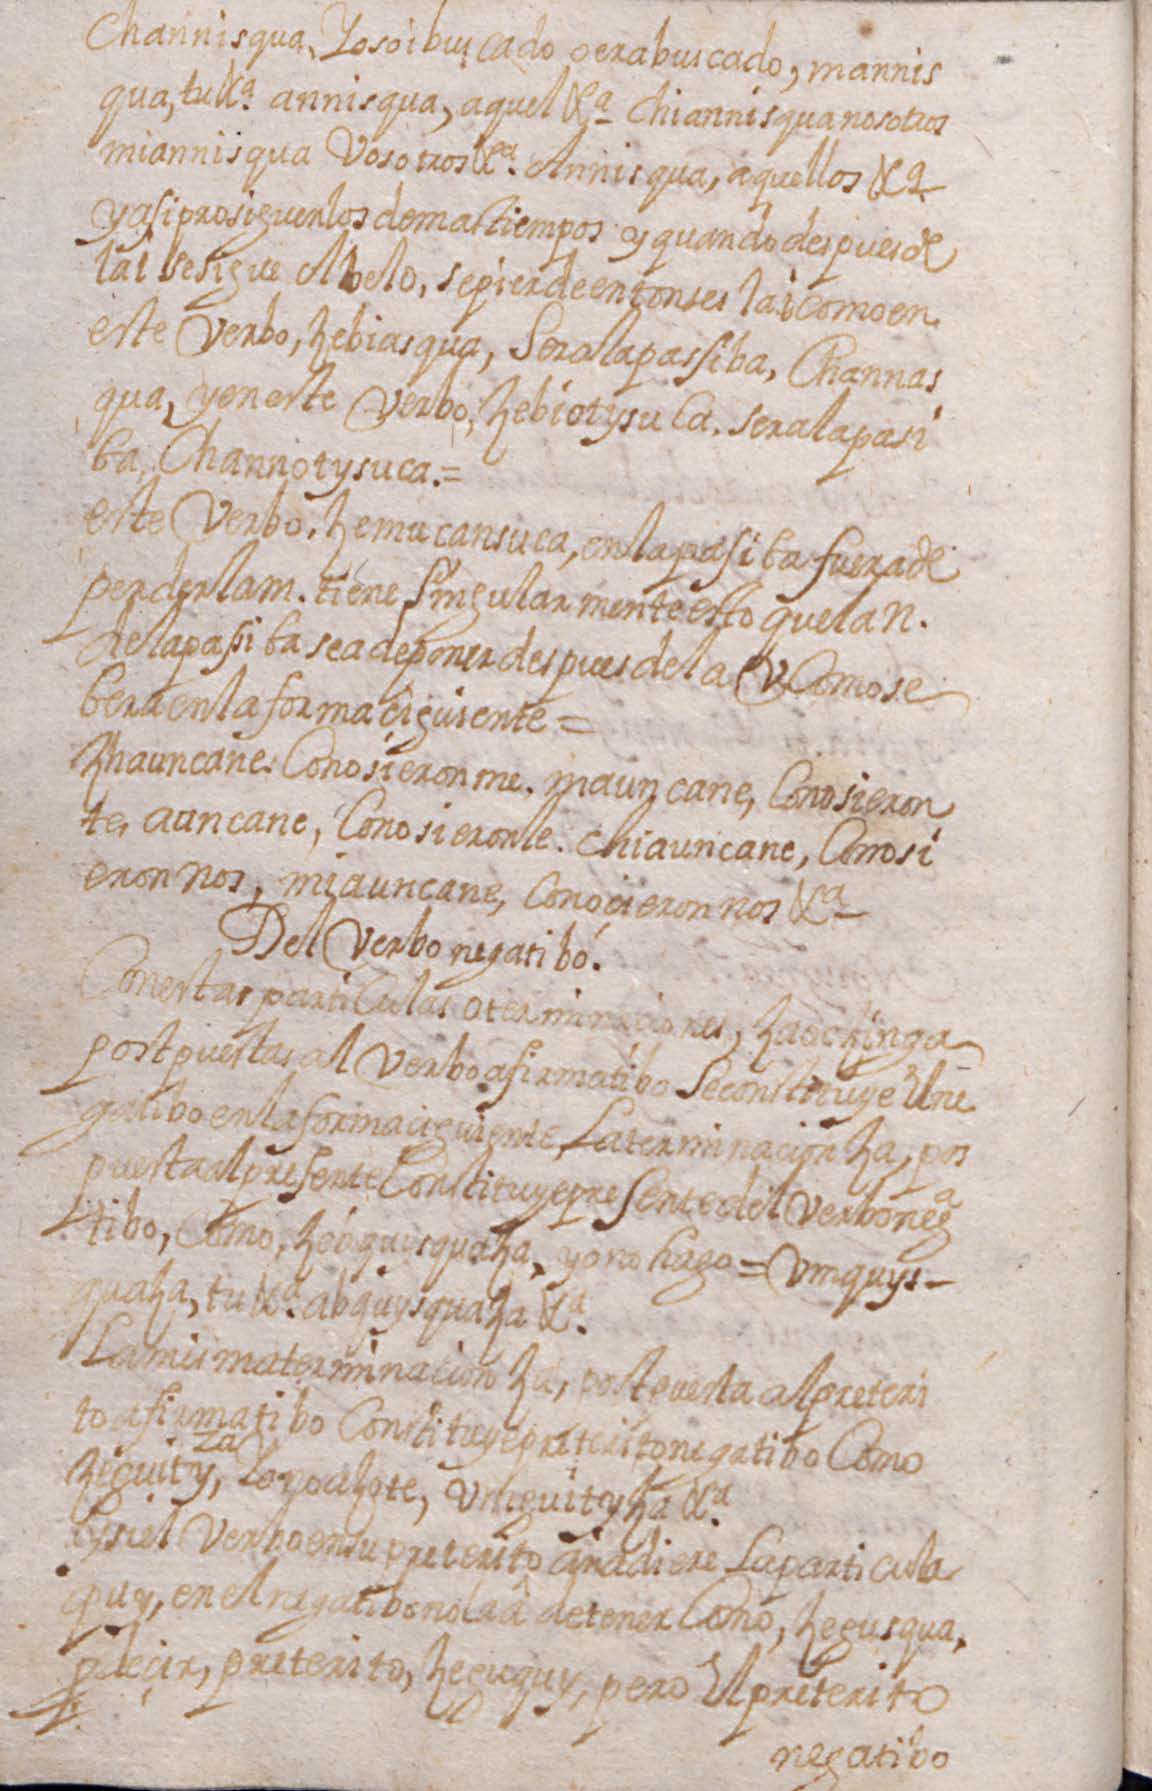 Channisqua, Yo soi buscado o era buscado, mannis
qua, tu &ca. annisqua, aquel &ca chiannisqua nosotros
miannisqua Vosotros &ca. Annisqua, aquellos &ca
y asi prosiguen los demas tiempos y quando despues de
la i se sigue A belo, se pierde entonses la i como en
este Verbo, hebiasqua, Sera la passiba, Channas
qua, y en este Verbo, hebiotysuca. sera la pasi
ba, Channotysuca.=
este Verbo, hemucansuca, en la pasiba fuera de
perder la m. tiene singularmente esto que la n.
de la pasiba se a de poner despues de la V Como se
bera en la forma ciguiente =
hhauncane. Conosieronme. mauncane, Conosieron
te, auncane, Conosieronle. chiauncane, Conosi
eron nos, miauncane, conocieron nos &ca
Del Verbo negatibo.
Con estas particulas o terminaciones, ha o hinga
postpuestas al Verbo afirmatibo Se constituye El ne
gatibo en la forma ciguiente, La terminacion ha, pos
puesta al presente Constituye presente del Verbo nega
tibo, Como, hebquysquaha, yo no hago = Vmquys-
quaha, tu &ca. abquysquaha &ca.
La misma terminacion ha, postpuesta al preteri
to afirmatibo Constituye preterito negatibo Como
heguity, za Yo no azote, Vmguityha &ca.
y si el Verbo en su preterito añadiere La particula
quy, en el negatibo no la a de tener Como, hegusqua,
p.r decir, preterito, heguquy, pero El preterito
negatibo